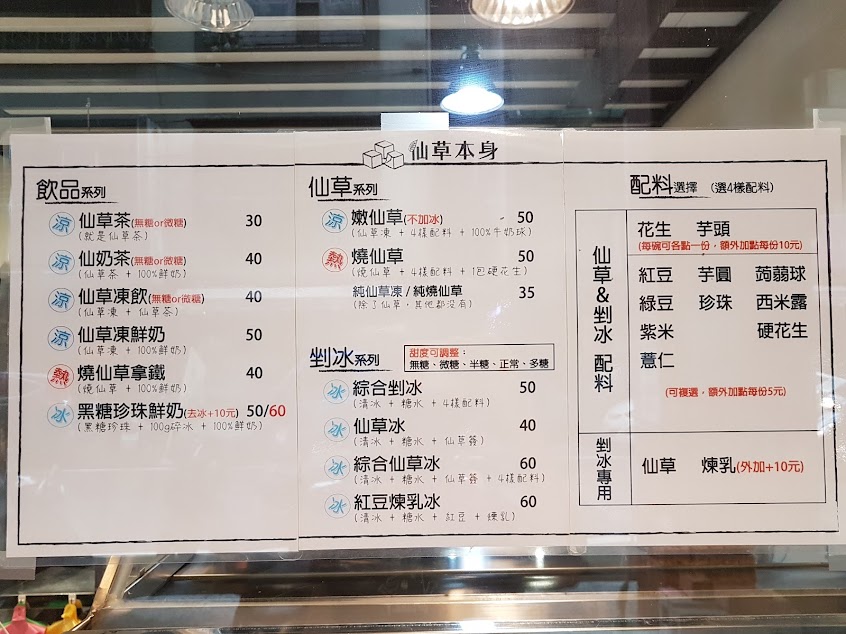 仙草本身
飲品系列
涼 仙草茶(無糖or微糖) 30
(就是仙草茶)
涼 仙奶茶(無糖or微糖) 40
(仙草茶 + 100%鮮奶)
涼 仙草凍飲(無糖or微糖) 40
(仙草凍 + 仙草茶)
涼 仙草凍鮮奶 50
(仙草凍 + 100%鮮奶)
熱 燒仙草拿鐵 40
(燒仙草 + 100%鮮奶)
冰 黑糖珍珠鮮奶(去冰+10元) 50/60
(黑糖珍珠 + 100g碎冰 + 100%鮮奶)
仙草系列
涼 嫩仙草(不加冰) 50
(仙草凍 + 4樣配料 + 100%牛奶球)
熱 燒仙草 50
(燒仙草 + 4樣配料 + 1包硬花生)
純仙草凍 / 純燒仙草 35
(除了仙草，其他都沒有)
剉冰系列
甜度可調整：
無糖、微糖、半糖、正常、多糖
冰 綜合剉冰 50
(清冰 + 糖水 + 4樣配料)
冰 仙草冰 40
(清冰 + 糖水 + 仙草蓉)
冰 綜合仙草冰 60
(清冰 + 糖水 + 仙草蓉 + 4樣配料)
冰 紅豆煉乳冰 60
(清冰 + 糖水 + 紅豆 + 煉乳)
配料選擇 (選4樣配料)
仙草&剉冰 配料
花生 芋頭
(每碗可各點一份，額外加點每份10元)
紅豆 芋圓 蒟蒻球
綠豆 珍珠 西米露
紫米 硬花生
薏仁
(可複選，額外加點每份5元)
剉冰專用
仙草 煉乳(外加+10元)